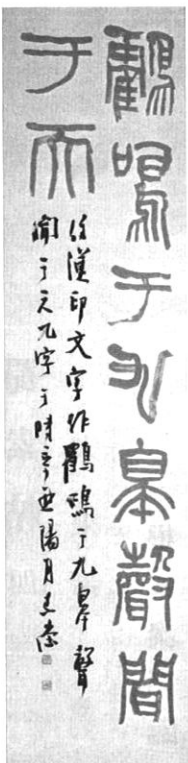 鸛鳴于九皋聲聞
于天
漢印文字作鸛鳴于九皋聲
聞于天九字于時辛酉陽月